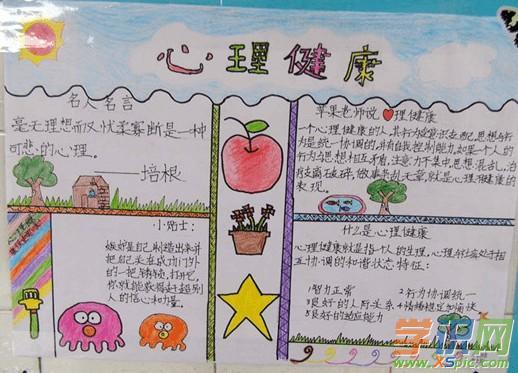 心理健康
名人名言
毫无理想而又忧柔寡断是一种
可悲的心理。
——培根
苹果老师说 理健康
一个心理健康的人,其行为受意识支配,思想与行
为是统一协调的,并有自我控制能力,如果一个人的
行为与思想相互矛盾,注意力不集中,思想混乱,语
言支离破碎,做事杂乱无章,就是心理不健康的
表现。
小贴士:
嫉妒是自己制造出来并
把自己关在成功门外
的一把锈锁,打开它,
你就能获得赶超别
人的信心和力量。
什么是心理健康
心理健康就是指个人的生理、心理与社会处于相
互协调的和谐状态特征:
1智力正常 2行为协调统一
3良好的人际关系 4情绪稳定和愉快
5良好的适应能力
学识网
www.xspic.com